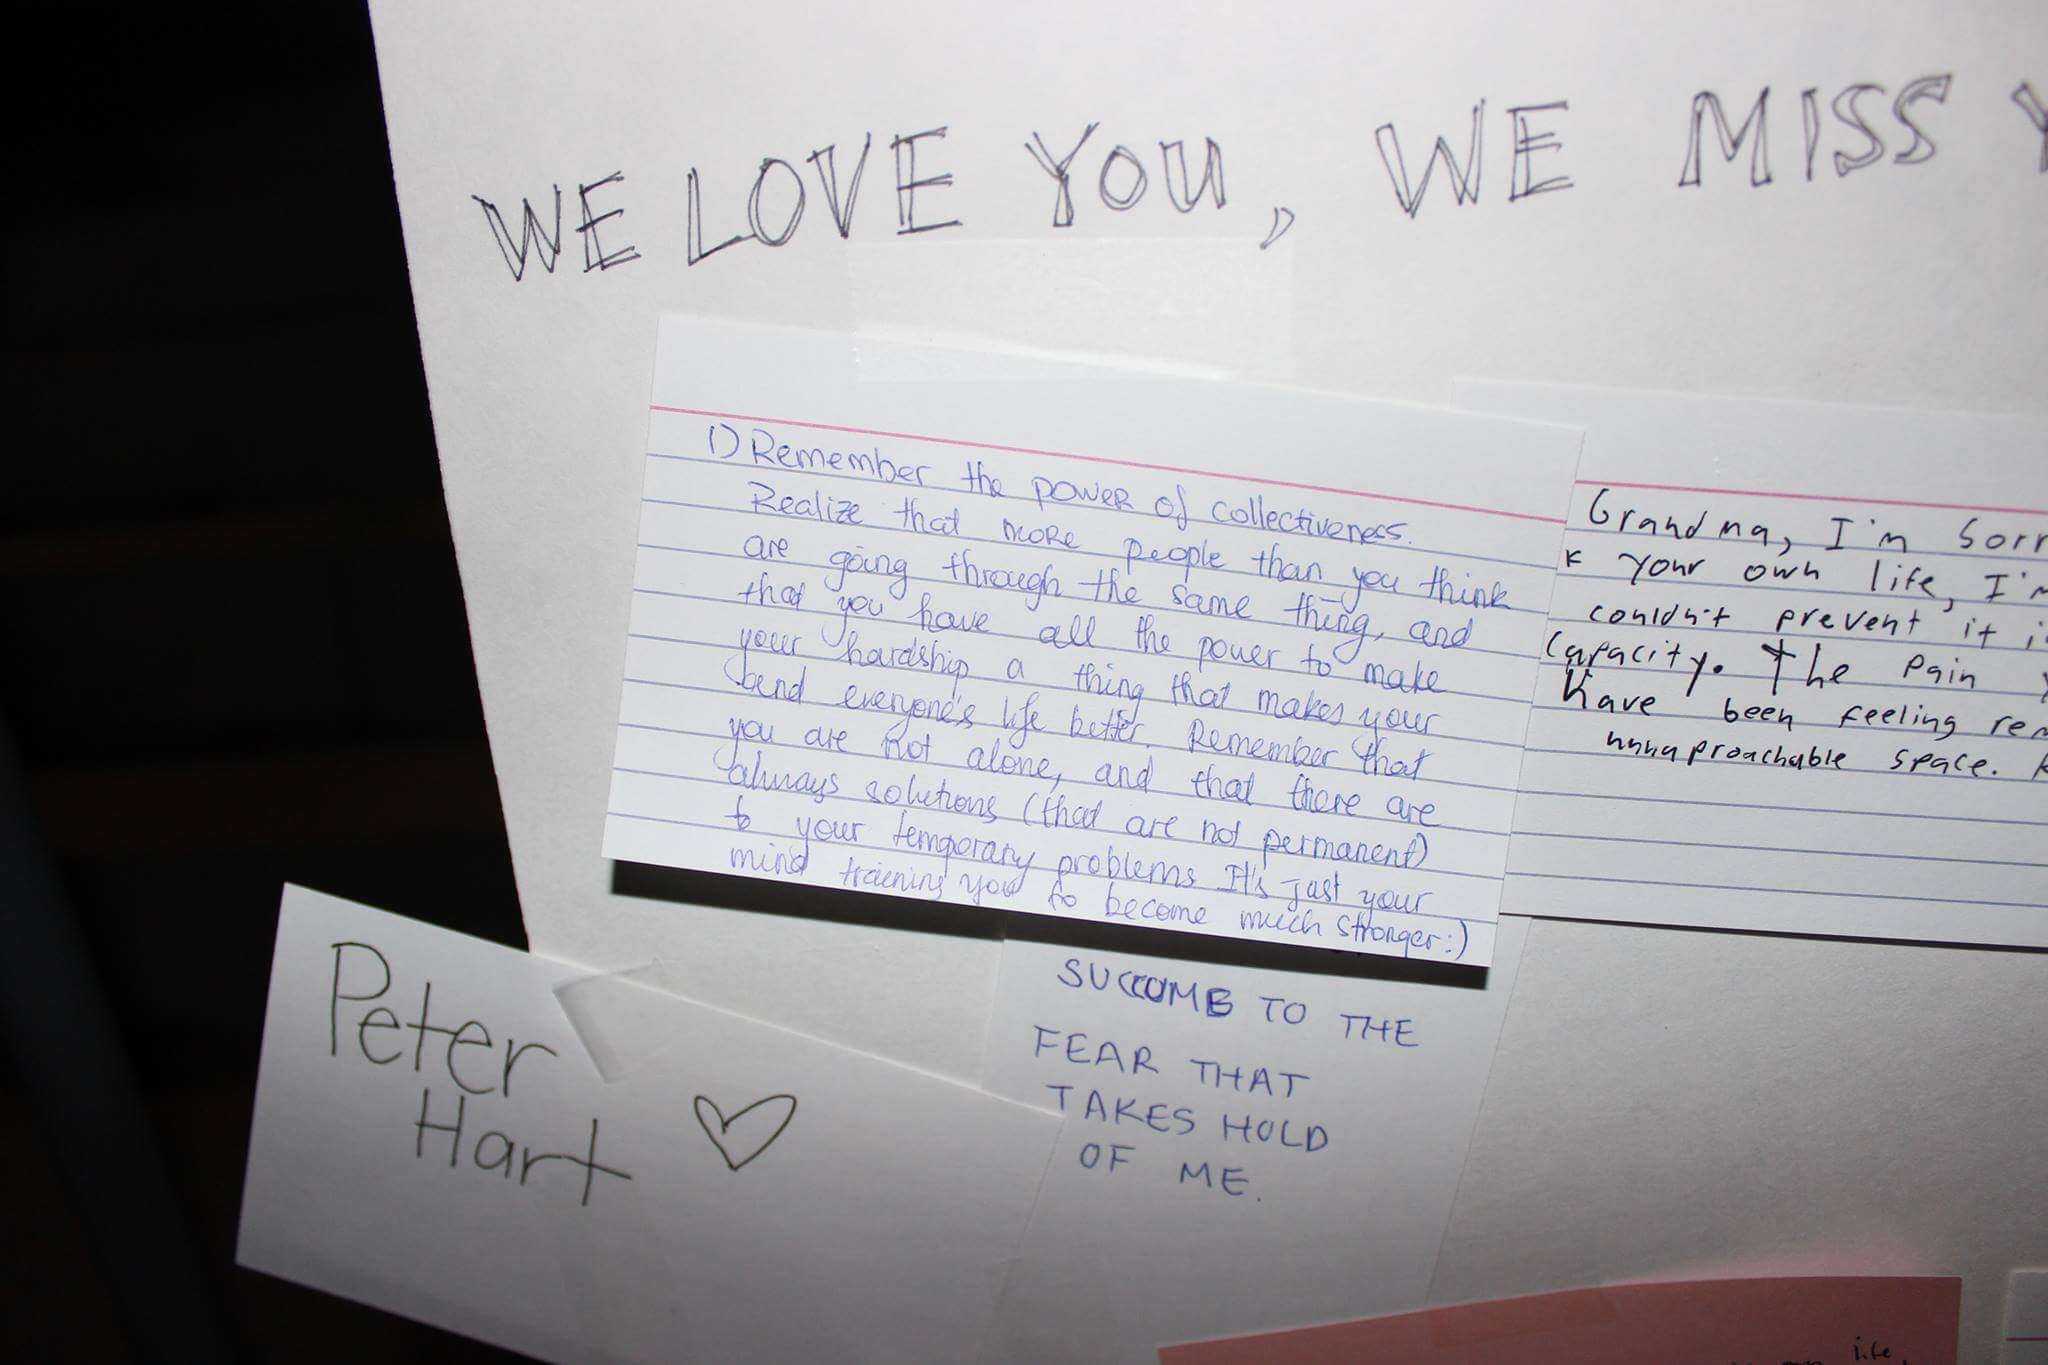 WE LOVE YOU, WE MISS Y
1) Remember the power of collectiveness.
Realize that more people than you think
are going through the same thing, and
that you have all the power to make
your hardship a thing that makes your
and everyone's life better. Remember that
you are not alone, and that there are
always solutions (that are not permanent)
to your temporary problems It's just your
mind training you to become much stronger:)
Grandma, I'm Sorr
your own life, I'm
couldn't prevent it i
Capacity. The pain y
have been feeling rem
space.
SUCCOMB TO THE
FEAR THAT
TAKES HOLD
OF ME.
Peter
Hart
life